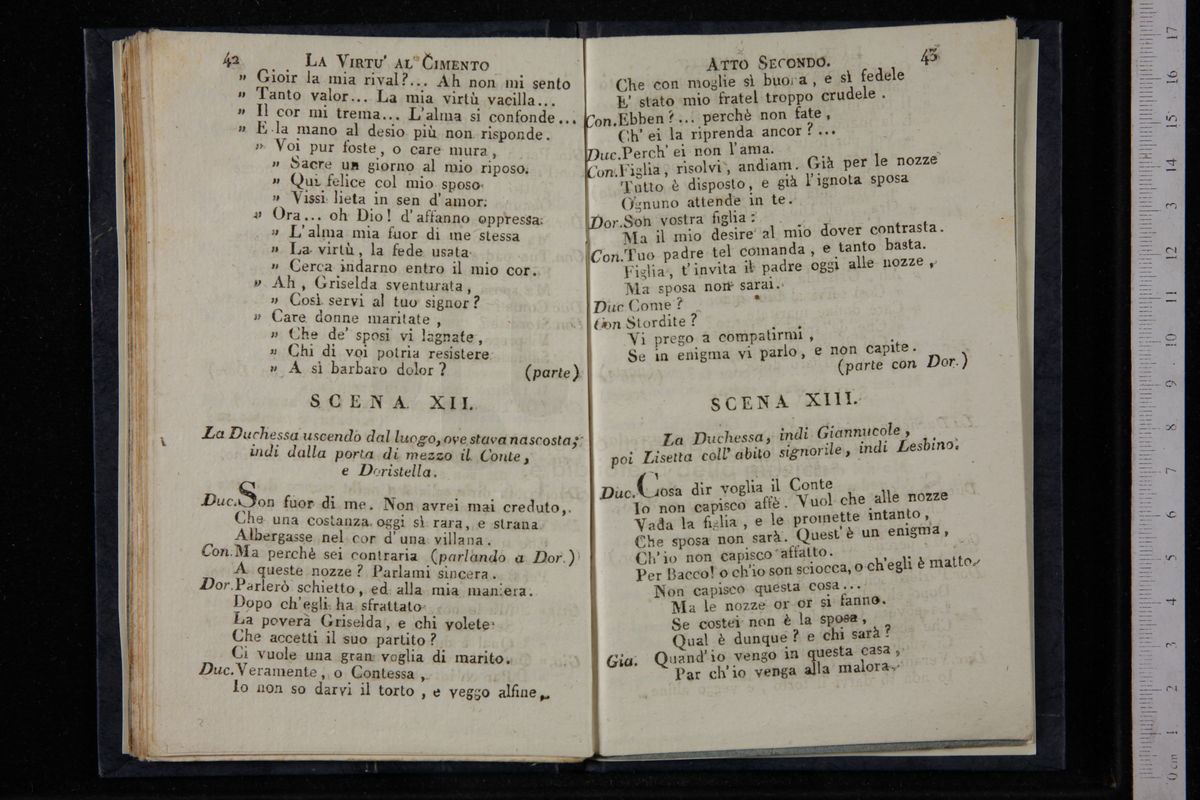 42 LA VIRTU' AL CIMENTO
" Gioir la mia rival?... Ah non mi sento
" Tanto valor... La mia virtù vacilla...
" Il cor mi trema... L'alma si confonde...
" E la mano al desio più non risponde.
" Voi pur foste, o care mura,
" Sacre un giorno al mio riposo.
" Qui felice col mio sposo
" Vissi lieta in sen d'amor.
" Ora... oh Dio! d'affanno oppressa
" L'alma mia fuor di me stessa
" La virtù, la fede usata
" Cerca indarno entro il mio cor.
" Ah, Griselda sventurata,
" Così servi al tuo signor?
" Care donne maritate,
" Che de' sposi vi lagnate,
" Chi di voi potria resistere
" A sì barbaro dolor? (parte)
SCENA XII.
La Duchessa uscendo dal luogo, ove stava nascosta;
indi dalla porta di mezzo il Conte,
e Doristella.
Duc. Son fuor di me. Non avrei mai creduto,
Che una costanza oggi sì rara, e strana
Albergasse nel cor d'una villana.
Con. Ma perchè sei contraria (parlando a Dor.)
A queste nozze? Parlami sincera.
Dor. Parlerò schietto, ed alla mia maniera.
Dopo ch'egli ha sfrattato
La povera Griselda, e chi volete
Che accetti il suo partito?
Ci vuole una gran voglia di marito.
Duc. Veramente, o Contessa,
Io non so darvi il torto, e veggo alfine,
ATTO SECONDO. 43
Che con moglie sì buona, e sì fedele
E' stato mio fratel troppo crudele.
Con. Ebben?... perchè non fate,
Ch' ei la riprenda ancor?...
Duc. Perch' ei non l'ama.
Con. Figlia, risolvi, andiam. Già per le nozze
Tutto è disposto, e già l'ignota sposa
Ognuno attende in te.
Dor. Son vostra figlia:
Ma il mio desire al mio dover contrasta.
Con. Tuo padre tel comanda, e tanto basta.
Figlia, t'invita il padre oggi alle nozze,
Ma sposa non sarai.
Duc Come?
Con Stordite?
Vi prego a compatirmi,
Se in enigma vi parlo, e non capite.
(parte con Dor.)
SCENA XIII.
La Duchessa, indi Giannucole,
poi Lisetta coll' abito signorile, indi Lesbino.
Duc. Cosa dir voglia il Conte
Io non capisco affè. Vuol che alle nozze
Vada la figlia, e le promette intanto,
Che sposa non sarà. Quest'è un enigma,
Ch'io non capisco affatto.
Per Bacco! o ch'io son sciocca, o ch'egli è matto.
Non capisco questa cosa...
Ma le nozze or or si fanno.
Se costei non è la sposa,
Qual è dunque? e chi sarà?
Gia. Quand'io vengo in questa casa,
Par ch'io venga alla malora.
0 cm 1 2 3 4 5 6 7 8 9 10 11 12 13 14 15 16 17